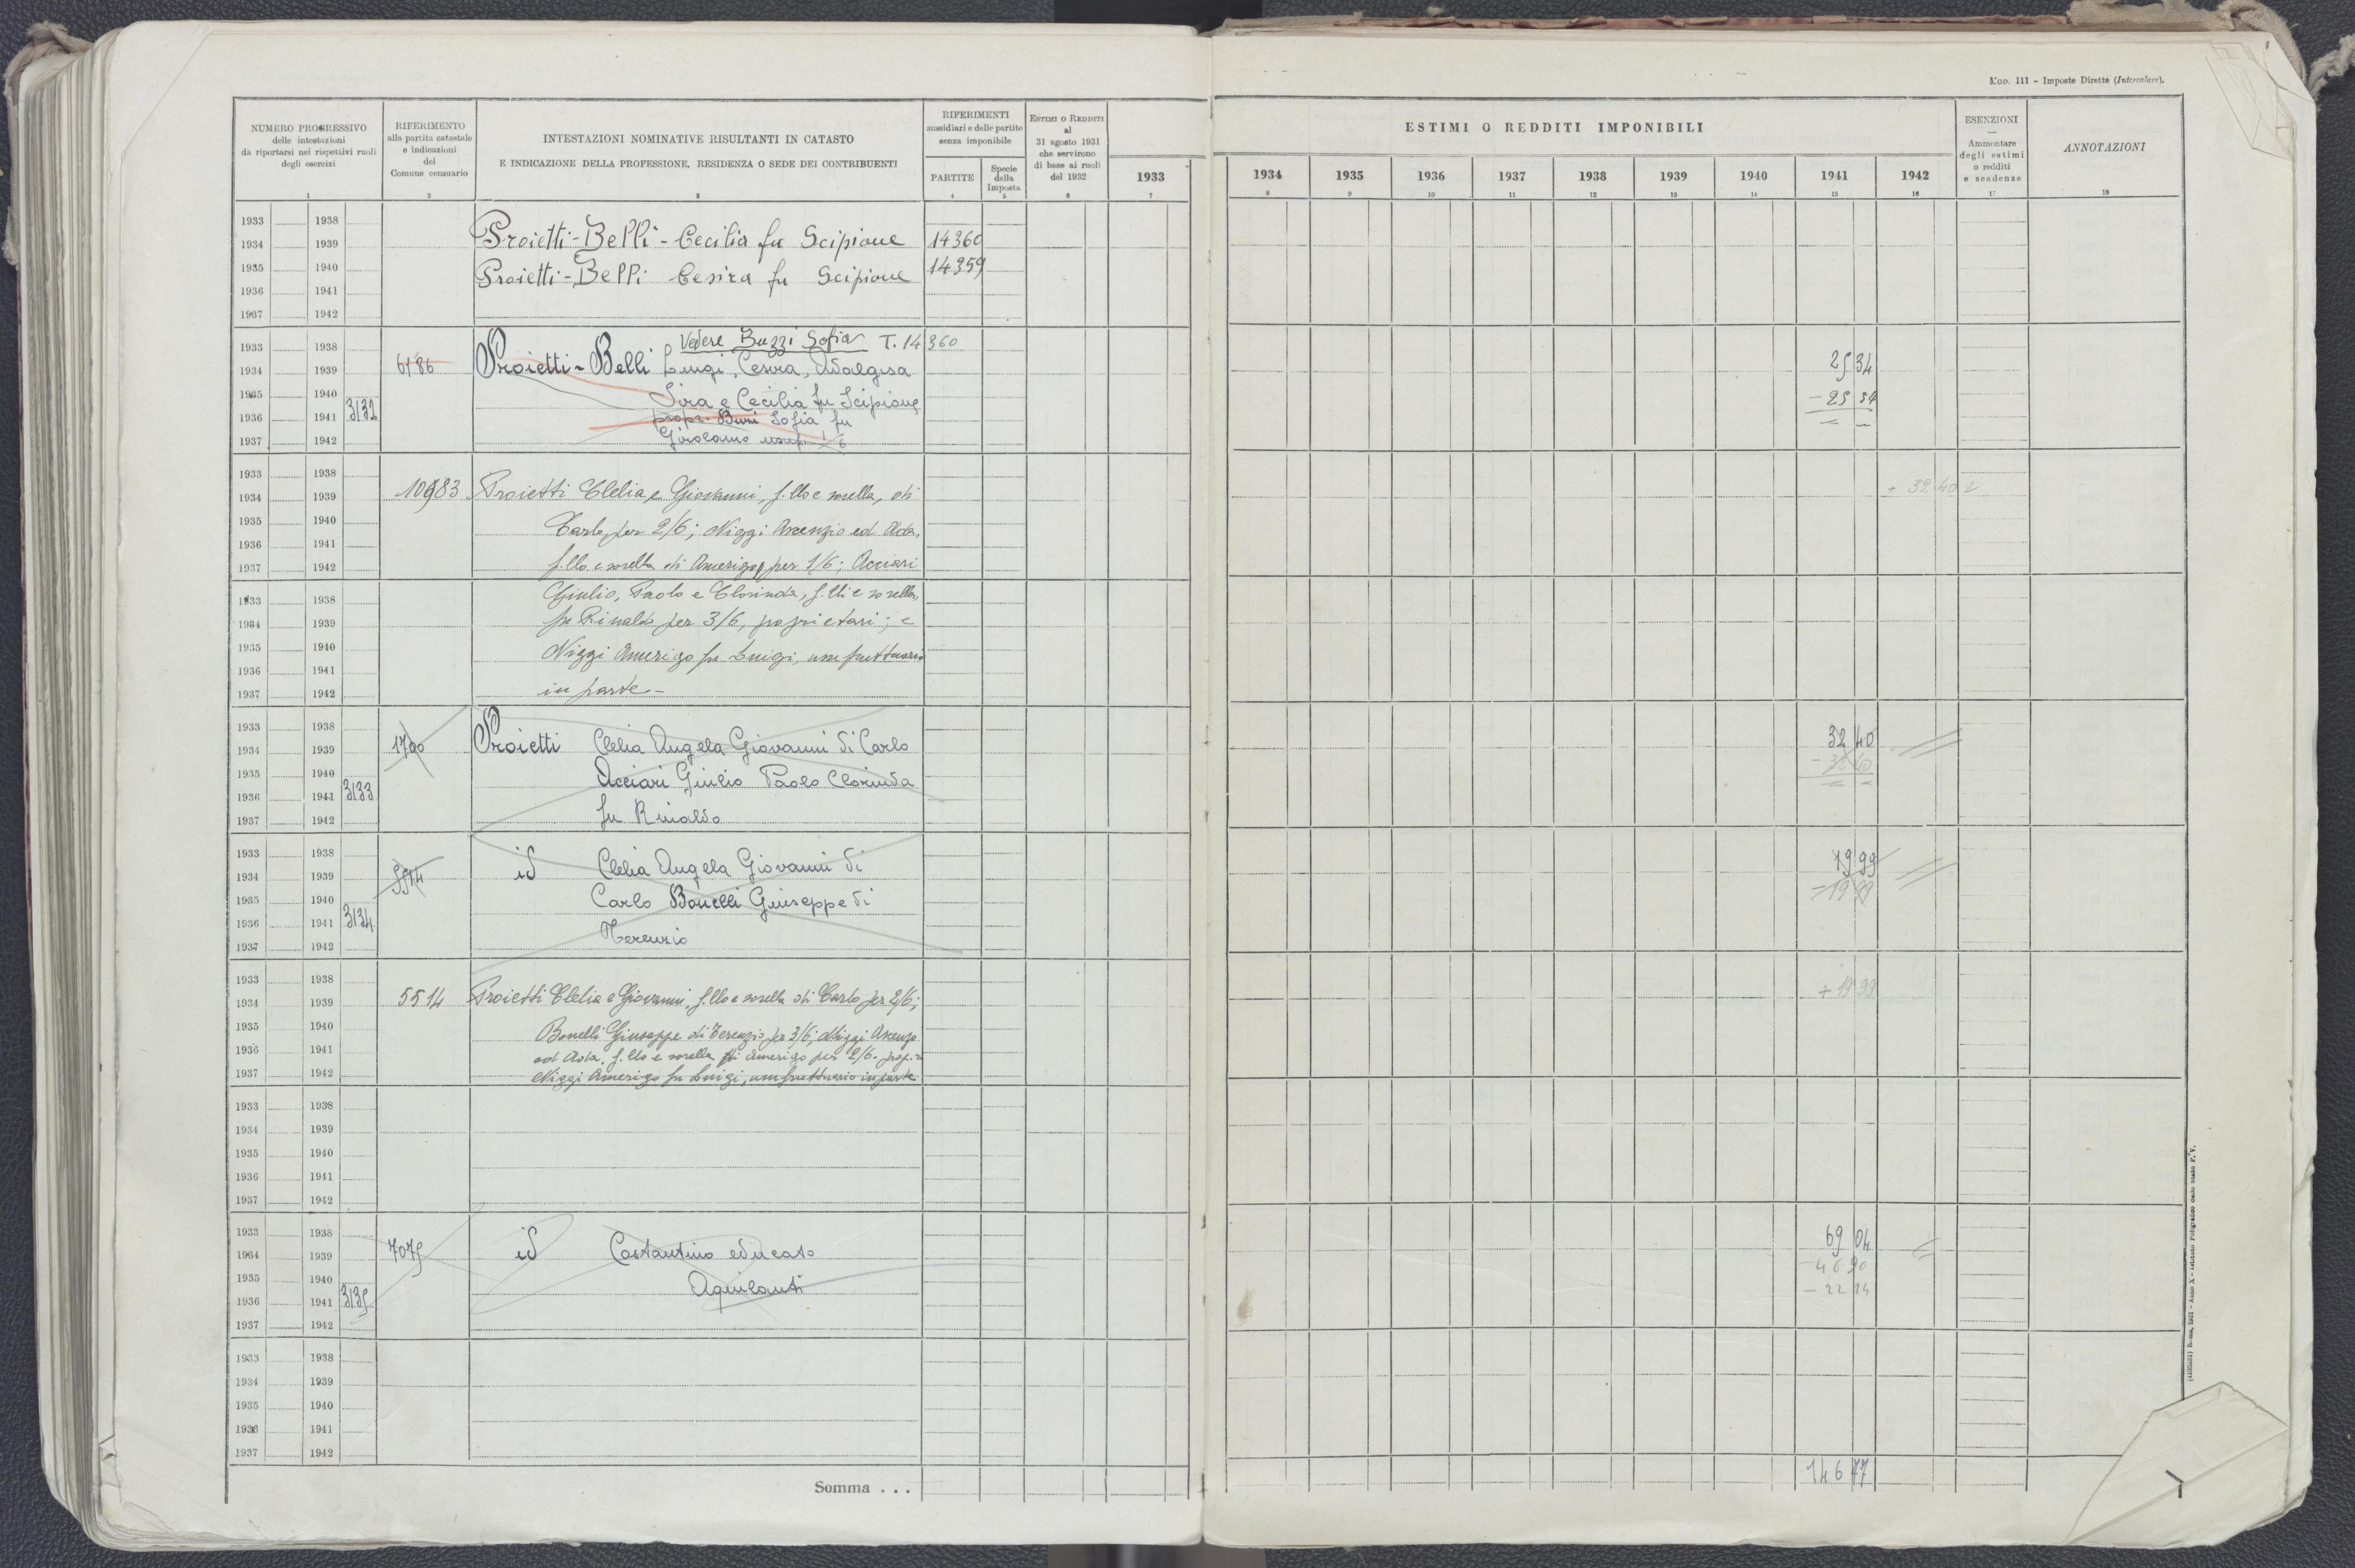 Mod. 111 - Imposte Dirette (Intercalare).
NUMERO PROGRESSIVO
delle intestazioni
da riportarsi nei rispettivi ruoli
degli esercizi
1
RIFERIMENTO
alla partita catastale
e indicazioni
del
Comune censuario
2
INTESTAZIONI NOMINATIVE RISULTANTI IN CATASTO
E INDICAZIONE DELLA PROFESSIONE, RESIDENZA O SEDE DEI CONTRIBUENTI
3
RIFERIMENTI
sussidiari e delle partite
senza imponibile
PARTITE
4
Specie
della
Imposta
5
ESTIMI O REDDITI
al
31 agosto 1931
che servirono
di base ai ruoli
del 1932
6
1933
7
ESTIMI O REDDITI IMPONIBILI
1934 1935 1936 1937 1938 1939 1940 1941 1942
8 9 10 11 12 13 14 15 16
ESENZIONI
Ammontare
degli estimi
o redditi
e scadenze
17
ANNOTAZIONI
18
1933 1938
1934 1939 Proietti-Belli-Cecilia fu Scipione 14360
1935 1940 Proietti-Belli Cesira fu Scipione 14359
1936 1941
1937 1942
Vedere Buzzi Sofia T. 14360
1933 1938
1934 1939 6186 Proietti-Belli Luigi, Cesira, Adalgisa 25 34
1935 1940 Sira e Cecilia fu Scipione - 25 34
1936 1941 3132 propr. Buzzi Sofia fu
1937 1942 Girolamo usuf. 1/6
1933 1938
1934 1939 10983 Proietti Clelia e Giovanni, f.llo e sorella, di + 32 40
1935 1940 Carlo, per 2/6; Niggi Ascenzio ed Ada,
1936 1941
1937 1942 f.llo e sorella di Amerigo, per 1/6; Acciari
1933 1938 Giulio, Paolo e Clorinda, f.lli e sorella,
1934 1939 fu Rinaldo per 3/6, proprietari; e
1935 1940 Niggi Amerigo fu Luigi, usufruttuario
1936 1941
1937 1942 in parte -
1933 1938
1934 1939 1700 Proietti Clelia Angela Giovanni di Carlo 32 40
1935 1940 Acciari Giulio Paolo Clorinda - 32 40
1936 1941 3133
1937 1942 fu Rinaldo
1933 1938
1934 1939 5514 id Clelia Angela Giovanni di 19 99
1935 1940 Carlo Bonelli Giuseppe di - 19 99
1936 1941 3134
1937 1942 Terenzio
1933 1938
1934 1939 5514 Proietti Clelia e Giovanni, f.llo e sorella di Carlo per 2/6; + 19 99
1935 1940 Bonelli Giuseppe di Terenzio per 3/6; Niggi Ascenzo
1936 1941 ed Ada, f.llo e sorella di Amerigo per 2/6 - prop.
1937 1942 Niggi Amerigo fu Luigi, usufruttuario in parte
1933 1938
1934 1939
1935 1940
1936 1941
1937 1942
1933 1938
1934 1939 7075 id Costantino educato 69 04
1935 1940 Aquilanti - 46 90
1936 1941 3135 - 22 14
1937 1942
1933 1938
1934 1939
1935 1940
1936 1941
1937 1942
Somma . . . 146 77